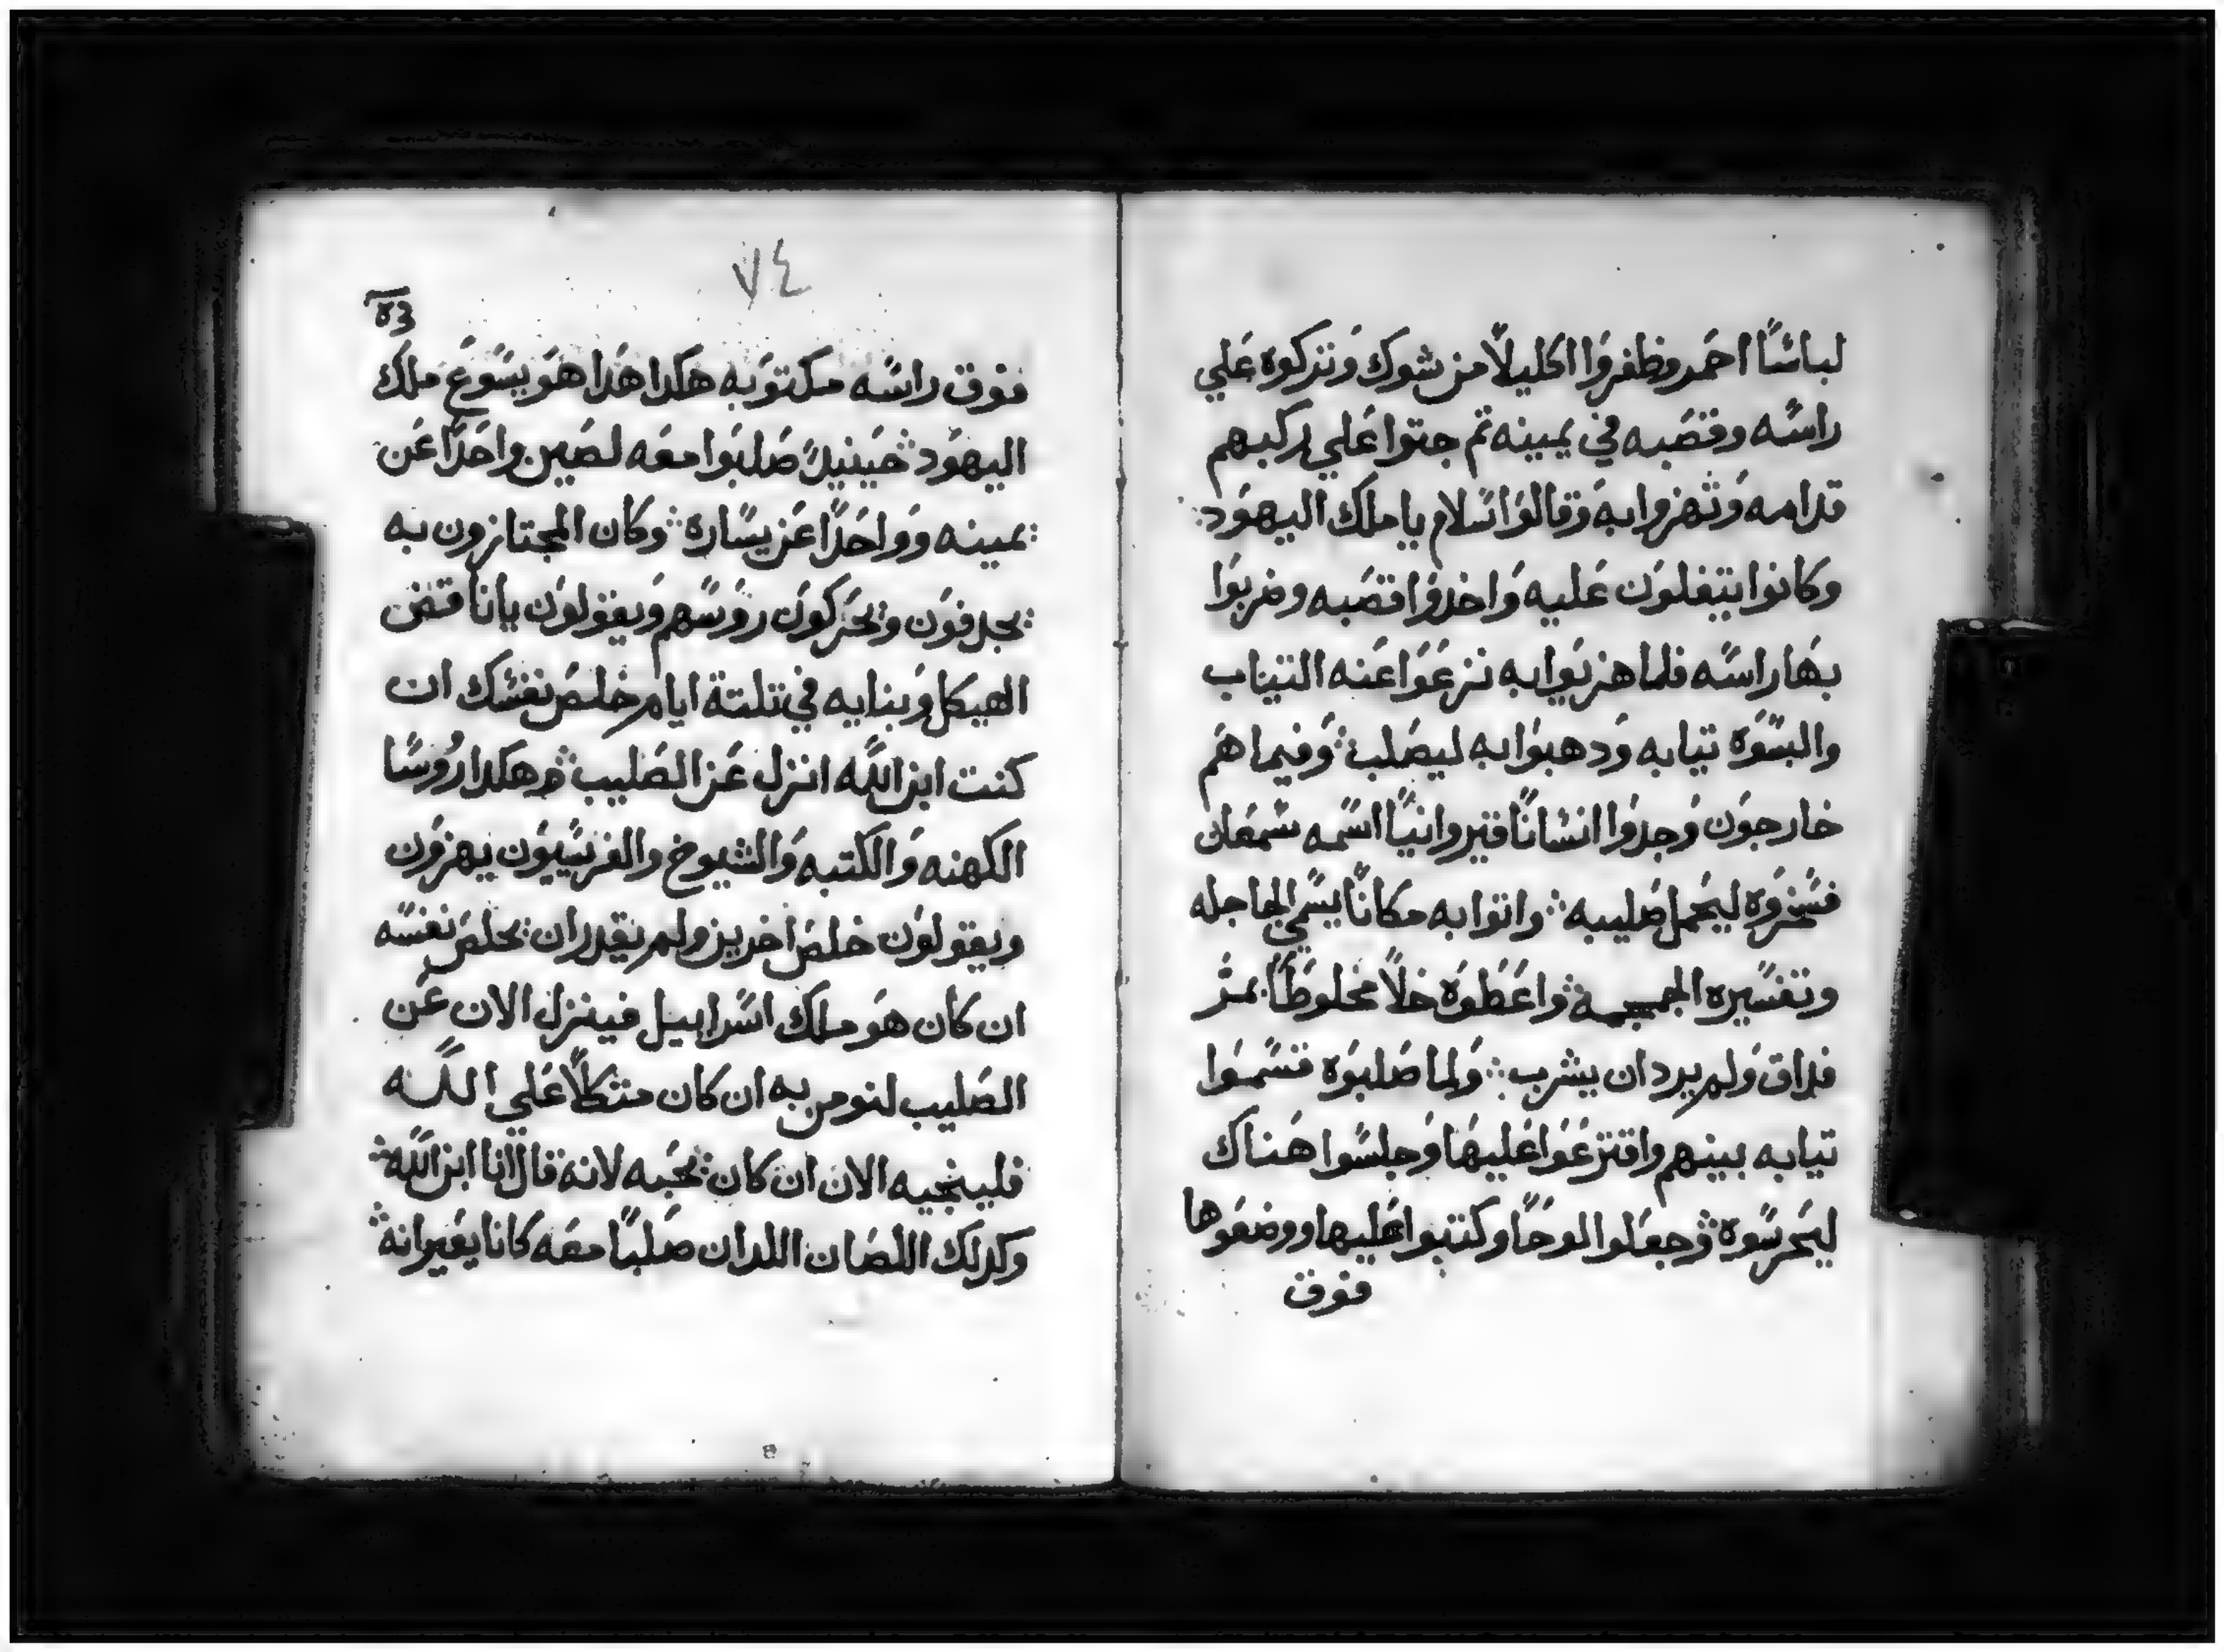 لباسًا احمر وظفروا اكليلاً من شوك وتركوه علي
راسه وقصبه في يمينه تم جتوا علي ركبهم
قدامه وتهزوا به وقالوا سلام يا ملك اليهود
وكانوا يتفلون عليه واخدوا قصبه وضربوا
بها راسه فلما هزيوا به نزعوا عنه التياب
والبسوه تيابه ودهبوا به ليصلب وفيما هم
خارجون وجدوا انسانًا قيروانيًا اسمه سمعان
فسخروه ليحمل صليبه واتوا به مكانًا يسمي الجاجله
وتفسيره الجمجمه واعطوه خلاً مخلوطًا بمر
فداق ولم يرد ان يشرب ولما صلبوه قسموا
تيابه بينهم واقترعوا عليها وجلسوا هناك
ليحرسوه وجعلوا لوحًا وكتبوا عليها ووضعوها
فوق
٧٤
فوق راسه مكتوبه هكدا هدا هو يسوع ملك
اليهود حينيدً صلبوا معه لصين واحدًا عن
يمينه وواحدًا عن يساره وكان المجتازون به
يجدفون ويحركون روسهم ويقولون يا ناقض
الهيكل وبنايه في تلتة ايام خلص نفسك ان
كنت ابن الله انزل عن الصليب وهكدا روسا
الكهنه والكتبه والشيوخ والفريسيون يهزون
ويقولون خلص اخرين ولم يقدر ان يخلص نفسه
ان كان هو ملك اسراييل فينزل الان عن
الصليب لنومن به ان كان متكلاً علي الله
فلينجيه الان ان كان يحبه لانه قال انا ابن الله
وكدلك اللصان اللدان صلبا معه كانا يعيرانه